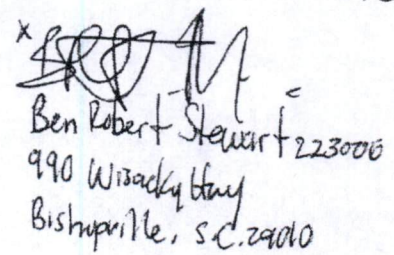 x
Ben Robert Stewart 223000
990 Wisacky Hwy
Bishopville, S.C. 29010